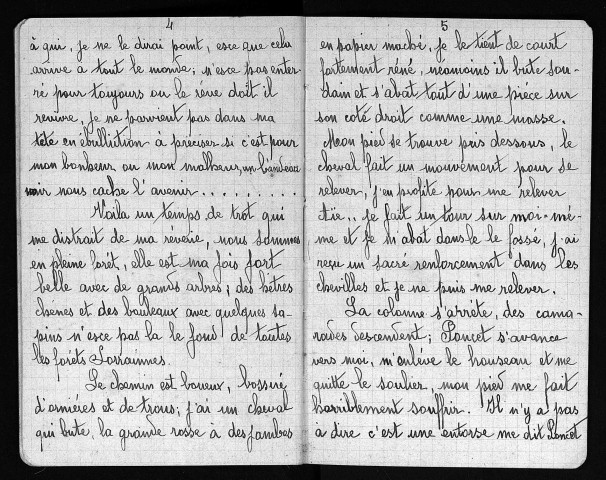 4
à qui, je ne le dirai point, esce que cela
arrive à tout le monde; n'esce pas enter-
ré pour toujours ou le rêve doit il
revivre, je ne parvient pas dans ma
tete en ébullition à preciser si c'est pour
mon bonheur ou mon malheur, un bandeau
noir nous cache l'avenir . . . . . . . . .
Voila un temps de trot qui
me distrait de ma réverie, nous sommes
en pleine forêt, elle est ma fois fort
belle avec de grands arbres; des hêtres
chênes et des bouleaux avec quelques sa-
pins n'esce pas la le fond de toutes
les forêts Lorrainnes.
Le chemin est boueux, bossué
d'ornières et de trous; j'ai un cheval
qui bute, la grande rosse à des jambes
5
en papier maché, je le tient de court
fortement réné, neamoins il bute sou-
dain et s'abat tout d'une pièce sur
son coté droit comme une masse.
Mon pied se trouve pris dessous, le
cheval fait un mouvement pour se
relever, j'en profite pour me relever
Aïe... je fait un tour sur moi-mê-
me et je m'abat dans le le fossé, j'ai
reçu un sacré renforcement dans les
chevilles et je ne puis me relever.
La colonne s'arrête, des cama-
rades descendent; Poncet s'avance
vers moi, m'enlève le houseau et me
quitte le soulier, mon pied me fait
horriblement souffrir. Il n'y a pas
à dire c'est une entorse me dit Poncet